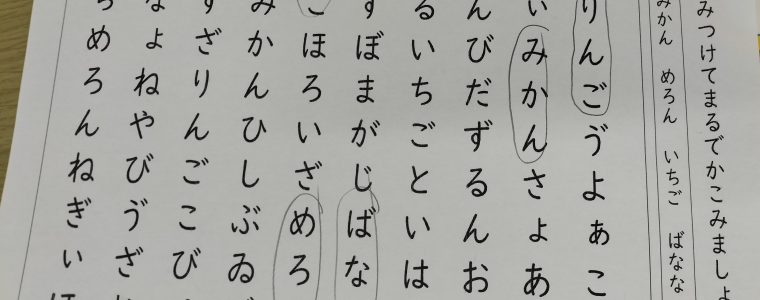 みつけてまるでかこみましょ
みかん めろん いちご ばなな
りんごゔよぁこ
いみかんさょあ
んびだずるんお
るいちごといは
ずぼまがじばな
こほろいざめろ
みかんひしぶゐ
ずざりんごこび
なょねやびゔざ
らめろんねぎぃ